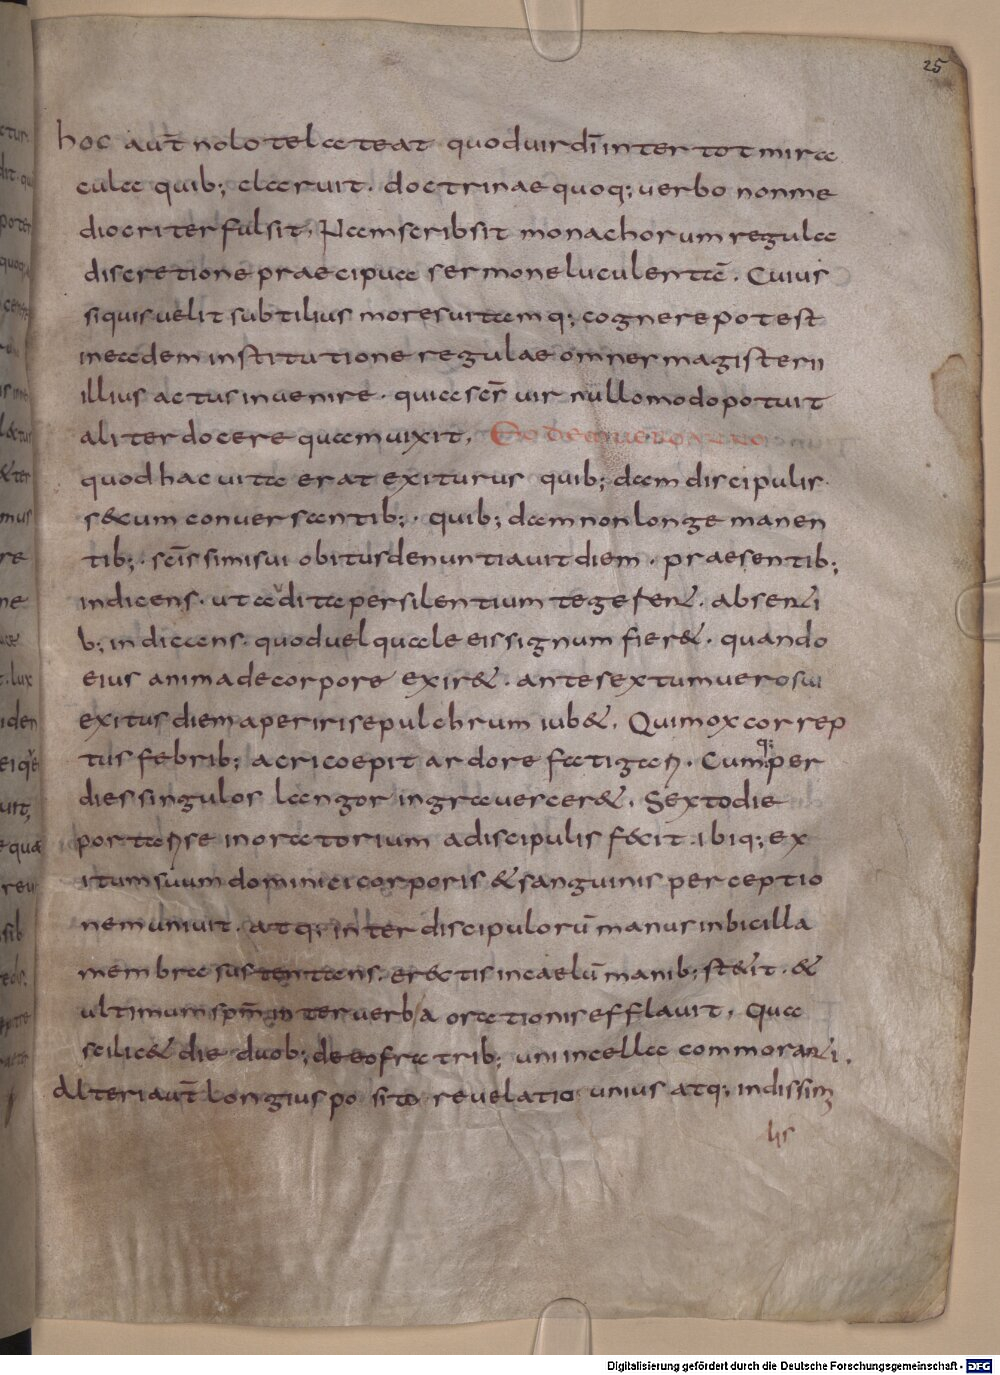 25
hoc aut̄ nolo te lateat quod uir dī inter tot mira
cula quib; claruit. doctrinae quoq; uerbo non me
diocriter fulsit. Nam scribsit monachorum regula
discretione praecipua sermone luculentā. Cuius
siquis uelit subtilius mores uitamq; cognere potest
in eadem institutione regulae omner magisterii
illius actus inuenire. quia scr̄ uir nullomodo potuit
aliter docere quam uixit. Eodem uero anno
quod hac uita erat exiturus quib; dam discipulis
secum conuersantib;. quib; dam non longe manen
tib;. scīssimi sui obitus denuntiauit diem. praesentib;
indicens. ut audita per silentium tegerent. absenti
b; indicens. quod uel quale eis signum fieret. quando
eius anima de corpore exiret. ante sextum uero sui
exitus diem aperiri sepulchrum iubet. Qui mox correp
tus febrib; acri coepit ardore fatigari. Cumq; per
dies singulos langor ingrauerceret. Sexto die
portari se in oratorium a discipulis fecit. ibiq; ex
itum suum dominici corporis & sanguinis perceptio
ne muniuit. atq; inter discipulorū manus inbicilla
membra sustentans. erectis in caelū manib; stetit. &
ultimum spm̄ inter uerba orationis efflauit. Qua
scilicet die duob; de eo fratrib; uni in cella commoranti.
Alteri aut̄ longius posito reuelatio unius atq; indissimi
lis
Digitalisierung gefördert durch die Deutsche Forschungsgemeinschaft - DFG